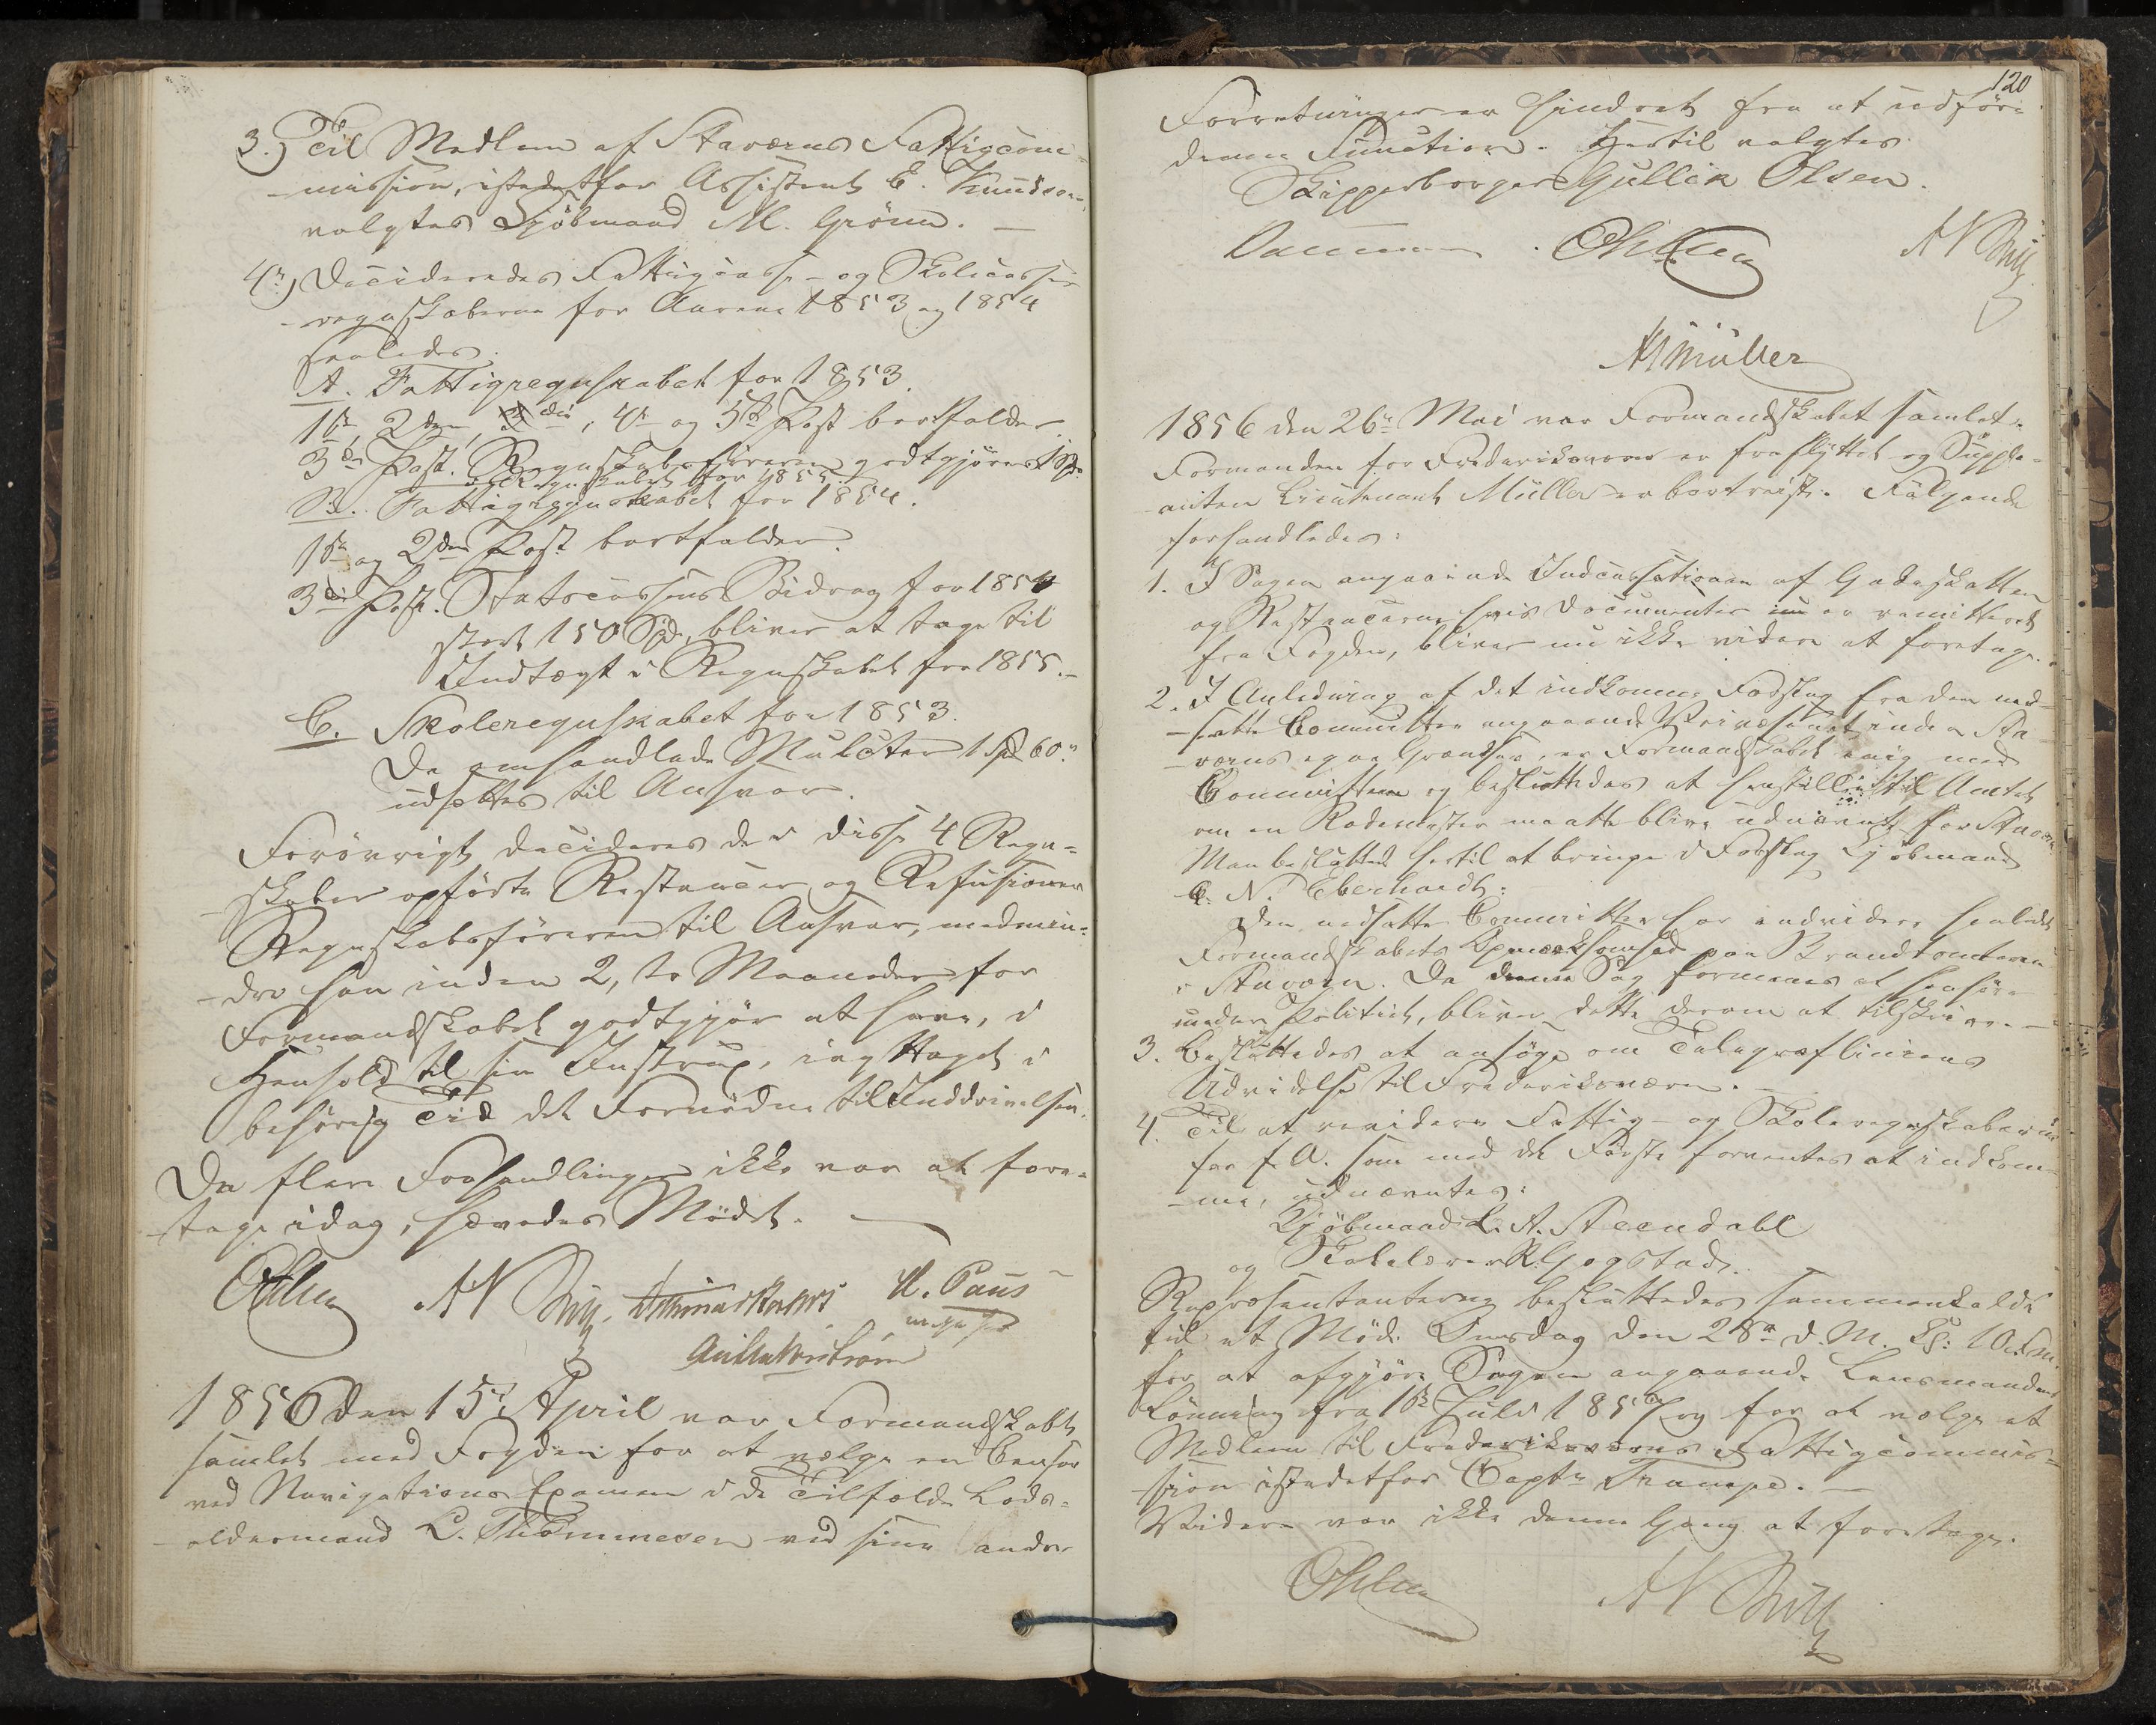 3.) Til Medlem af Staværns Fattigcom-
-mission, istedetfor Assistent C. Knudsen,
valgtes Kjöbmand M. Grönn. —
4.) Decideredes Fattigcasse- og Skolecasse-
-regnskaberne for Aarene 1853 og 1854
saaledes:
A. Fattigregnskabet for 1853.
1ste, 2den, 4de og 5te Post bortfalder.
3die Post. Regnskabsföreren godtgjöres 1 Spd.
i Regnskabet for 1855.
B. Fattigregnskabet for 1854.
1ste og 2den Post bortfalder.
3die Post. Statscassens Bidrag for 1854
stort 150 Spd. bliver at tage til
Indtægt i Regnskabet for 1855.—
C. Skoleregnskabet for 1853.
De omhandlede Mulcter 1 Spd 60
udsættes til Ansvar.
Forövrigt decideres de i disse 4 Regn-
-skaber opförte Restancer og Refusioner
Regnskabsföreren til Ansvar, medmin-
-dre han inden 2, to Maaneder for
Formandskabet godtgjör at have, i
Henhold til sin Instrux, iagttaget i
behörig Tid det Fornödne til Inddrivelsen.
Da flere Forhandlinger ikke var at fore-
-tage idag, hævedes Mödet. —
Ohlsen A N H. Paus
1856 den 15de April var Formandskabet
samlet med Fogden for at vælge en Censor
ved Navigations Examen i de Tilfælde Lods-
-oldermand L. Thommesen ved sine andre
120
Forretninger er hindret fra at udföre
denne Function. Hertil valgtes
Skipperborger Gullik Olsen.
Ohlsen A N
Müller
1856 den 26de Mai var Formandskabet samlet.
Formanden for Frederiksværn er fraflyttet og Supple-
-anten Lieutenant Müller er bortreist. Fölgende
forhandledes:
1. I Sagen angaaende Indcassationen af Godtskatten
og Restancerne hvis Documenter nu er remitteret
fra Fogden, bliver nu ikke videre at foretage.
2. I Anledning af det indkomne Forslag fra den ned-
-satte Committee angaaende Veivæsenet inden Sta-
-værns egne Grændser, er Formandskabet enig med
Committeen og besluttedes at henstille til Amtet
om en Rodemester maatte blive udnævnt for Staværn.
Man besluttede hertil at bringe i Forslag Kjöbmand
C. N. Eberhardt.
Den nedsatte Committee har endvidere henledet
Formandskabets Opmærksomhed paa Brandtomterne
i Staværn. Da denne Sag formenes at henhöre
under Politiet, bliver dette derom at tilskrive. —
3. Besluttedes at ansöge om Telegraflinieens
Udvidelse til Frederiksværn. —
4. Til at revidere Fattig- og Skoleregnskaberne
for f. A. som med det Förste forventes at indkom-
-me, udnævntes:
Kjöbmand L. A. Steendahl
og Skolelærer R. Gogstad.
Repræsentanterne besluttedes sammenkaldt
til et Möde Onsdag den 28de d. M. Kl. 10 Fm.
for at afgjöre Sagen angaaende Lensmandens
Lönning fra 1ste Juli og for at vælge et
Medlem til Frederiksværns Fattigcommis-
-sion istedetfor Captn Trampe. —
Videre var ikke denne Gang at foretage.
Ohlsen A N